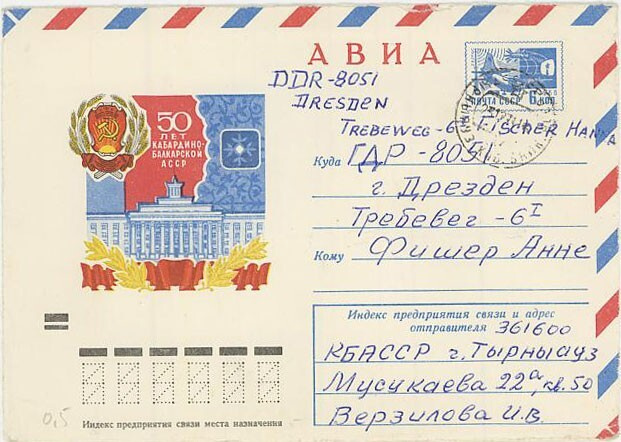 АВИА
DDR-8051
DRESDEN
TREBEWEG-6 FISCHER HANNA
ПОЧТА СССР 6 КОП.
50
ЛЕТ
КАБАРДИНО-
БАЛКАРСКОЙ
АССР
Куда ГДР -8051
г. Дрезден
Требевег -6ᴵ
Кому Фишер Анне
Индекс предприятия связи и адрес
отправителя 361600
КБАССР г. Тырныауз
Мусукаева 22а, кв. 50
Верзилова И.В.
0,5
Индекс предприятия связи места назначения